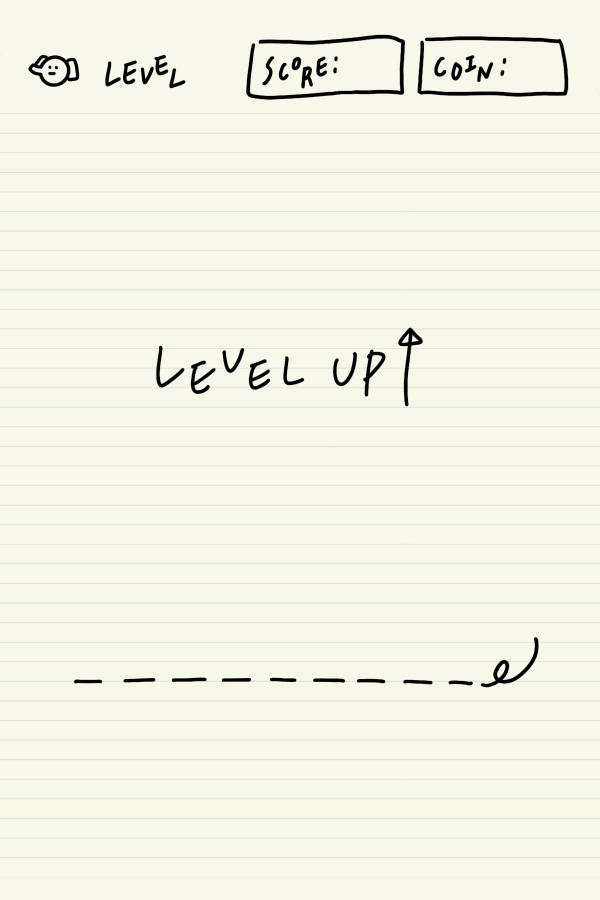 LEVEL SCORE: COIN:
LEVEL UP